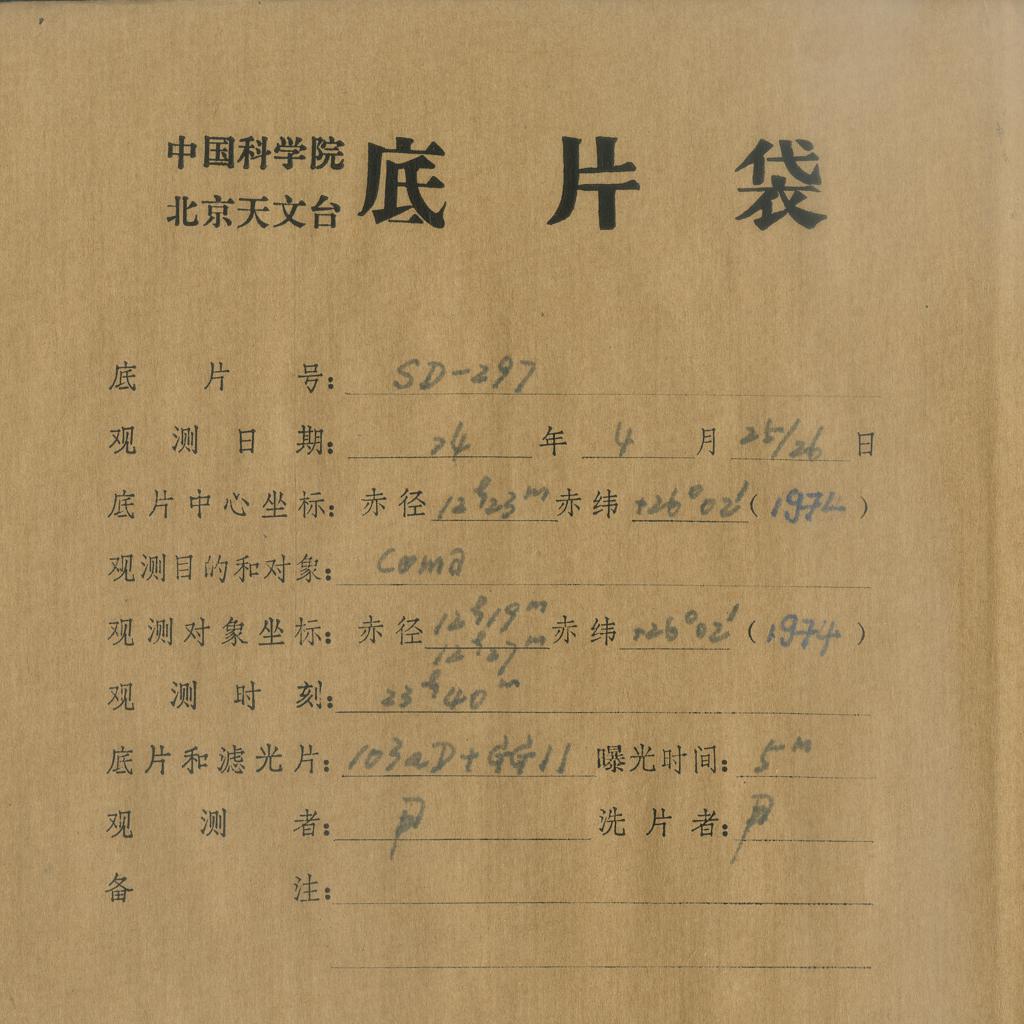 中国科学院
北京天文台 底片袋
底片号: SD-297
观测日期: 74 年 4 月 25/26 日
底片中心坐标: 赤径 12h23m 赤纬 +26°02′ (1974)
观测目的和对象: Coma
观测对象坐标: 赤径 12h19m 赤纬 +26°02′ (1974)
12h27m
观测时刻: 23h40m
底片和滤光片: 103aD+GG11 曝光时间: 5m
观测者: 洗片者:
备注: